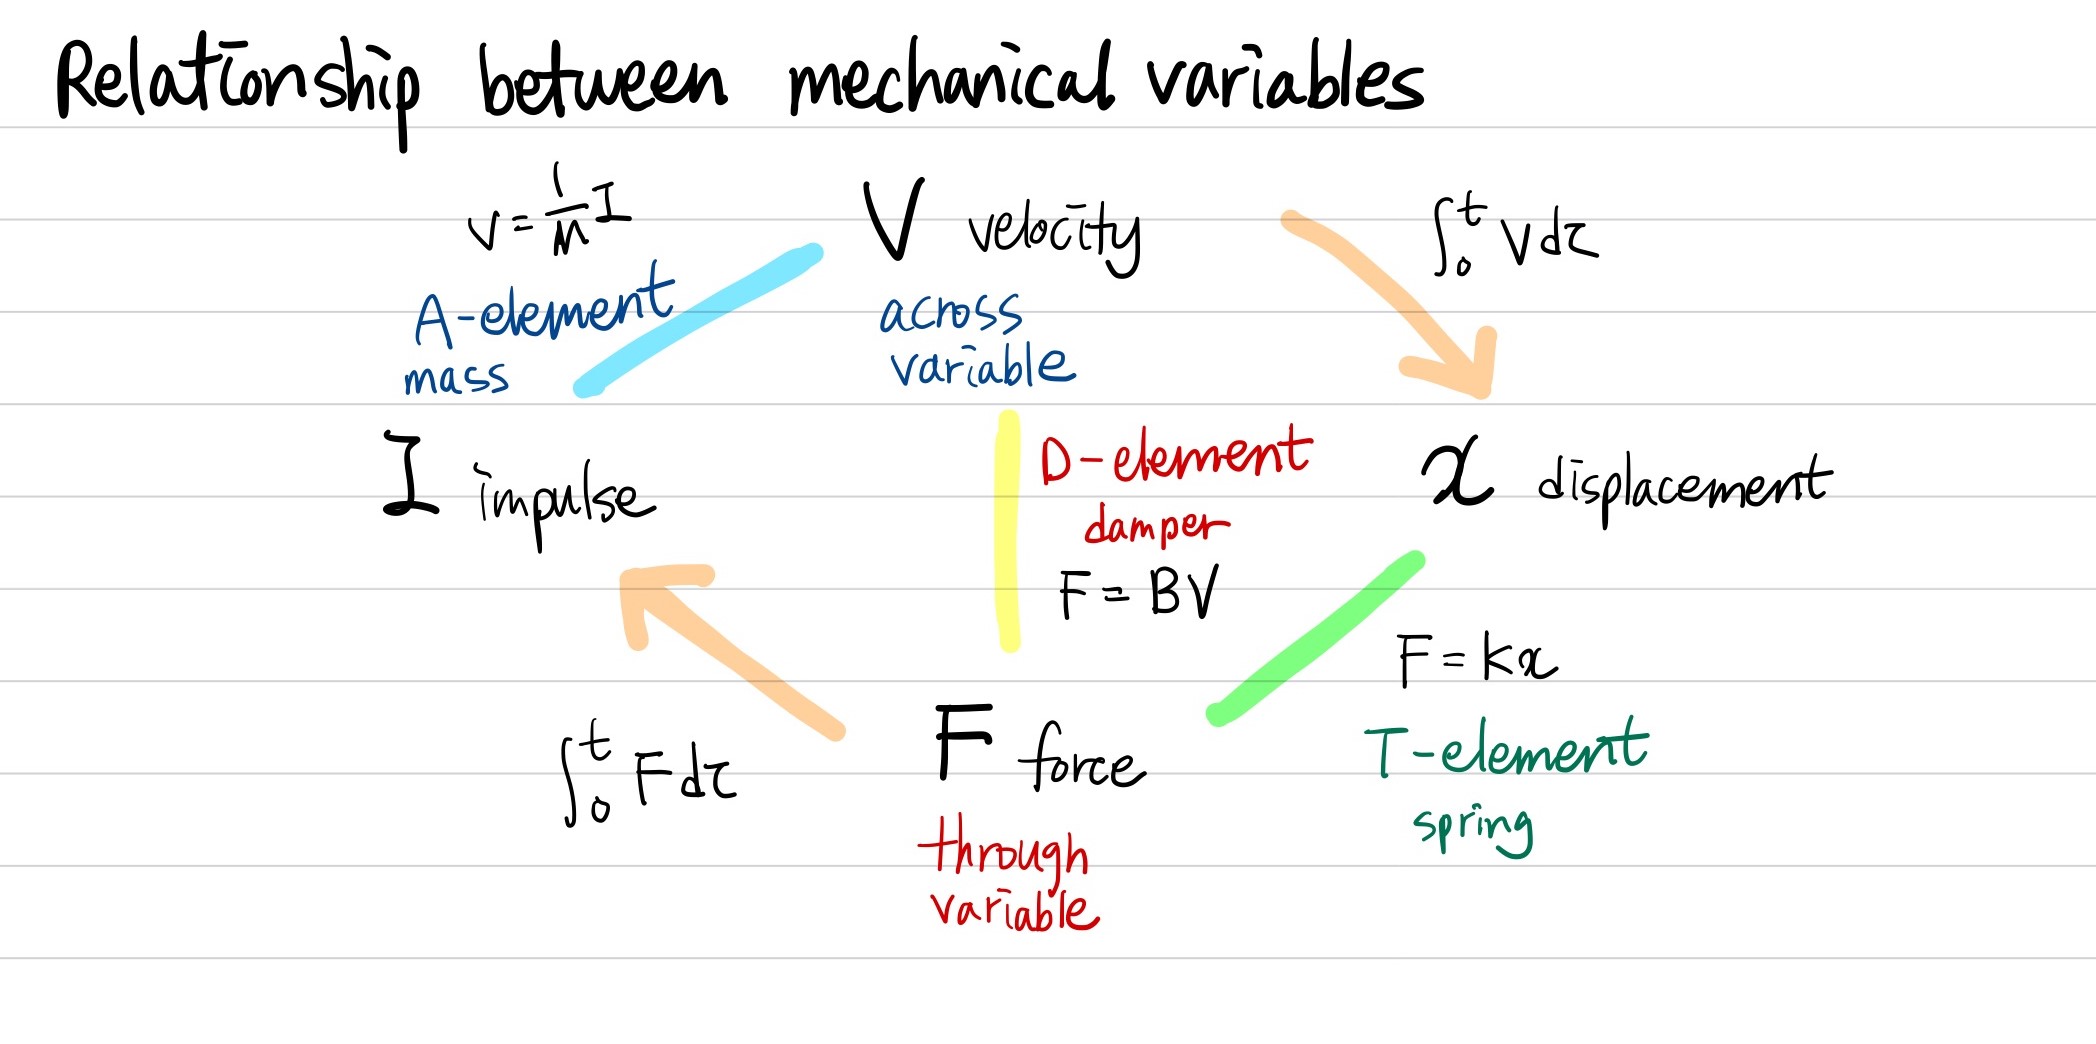 Relationship between mechanical variables
v = 1/m I
V velocity
∫₀ᵗ V dτ
A-element
mass
across
variable
I impulse
D-element
damper
F = BV
x displacement
F = kx
∫₀ᵗ F dτ
F force
T-element
spring
through
variable